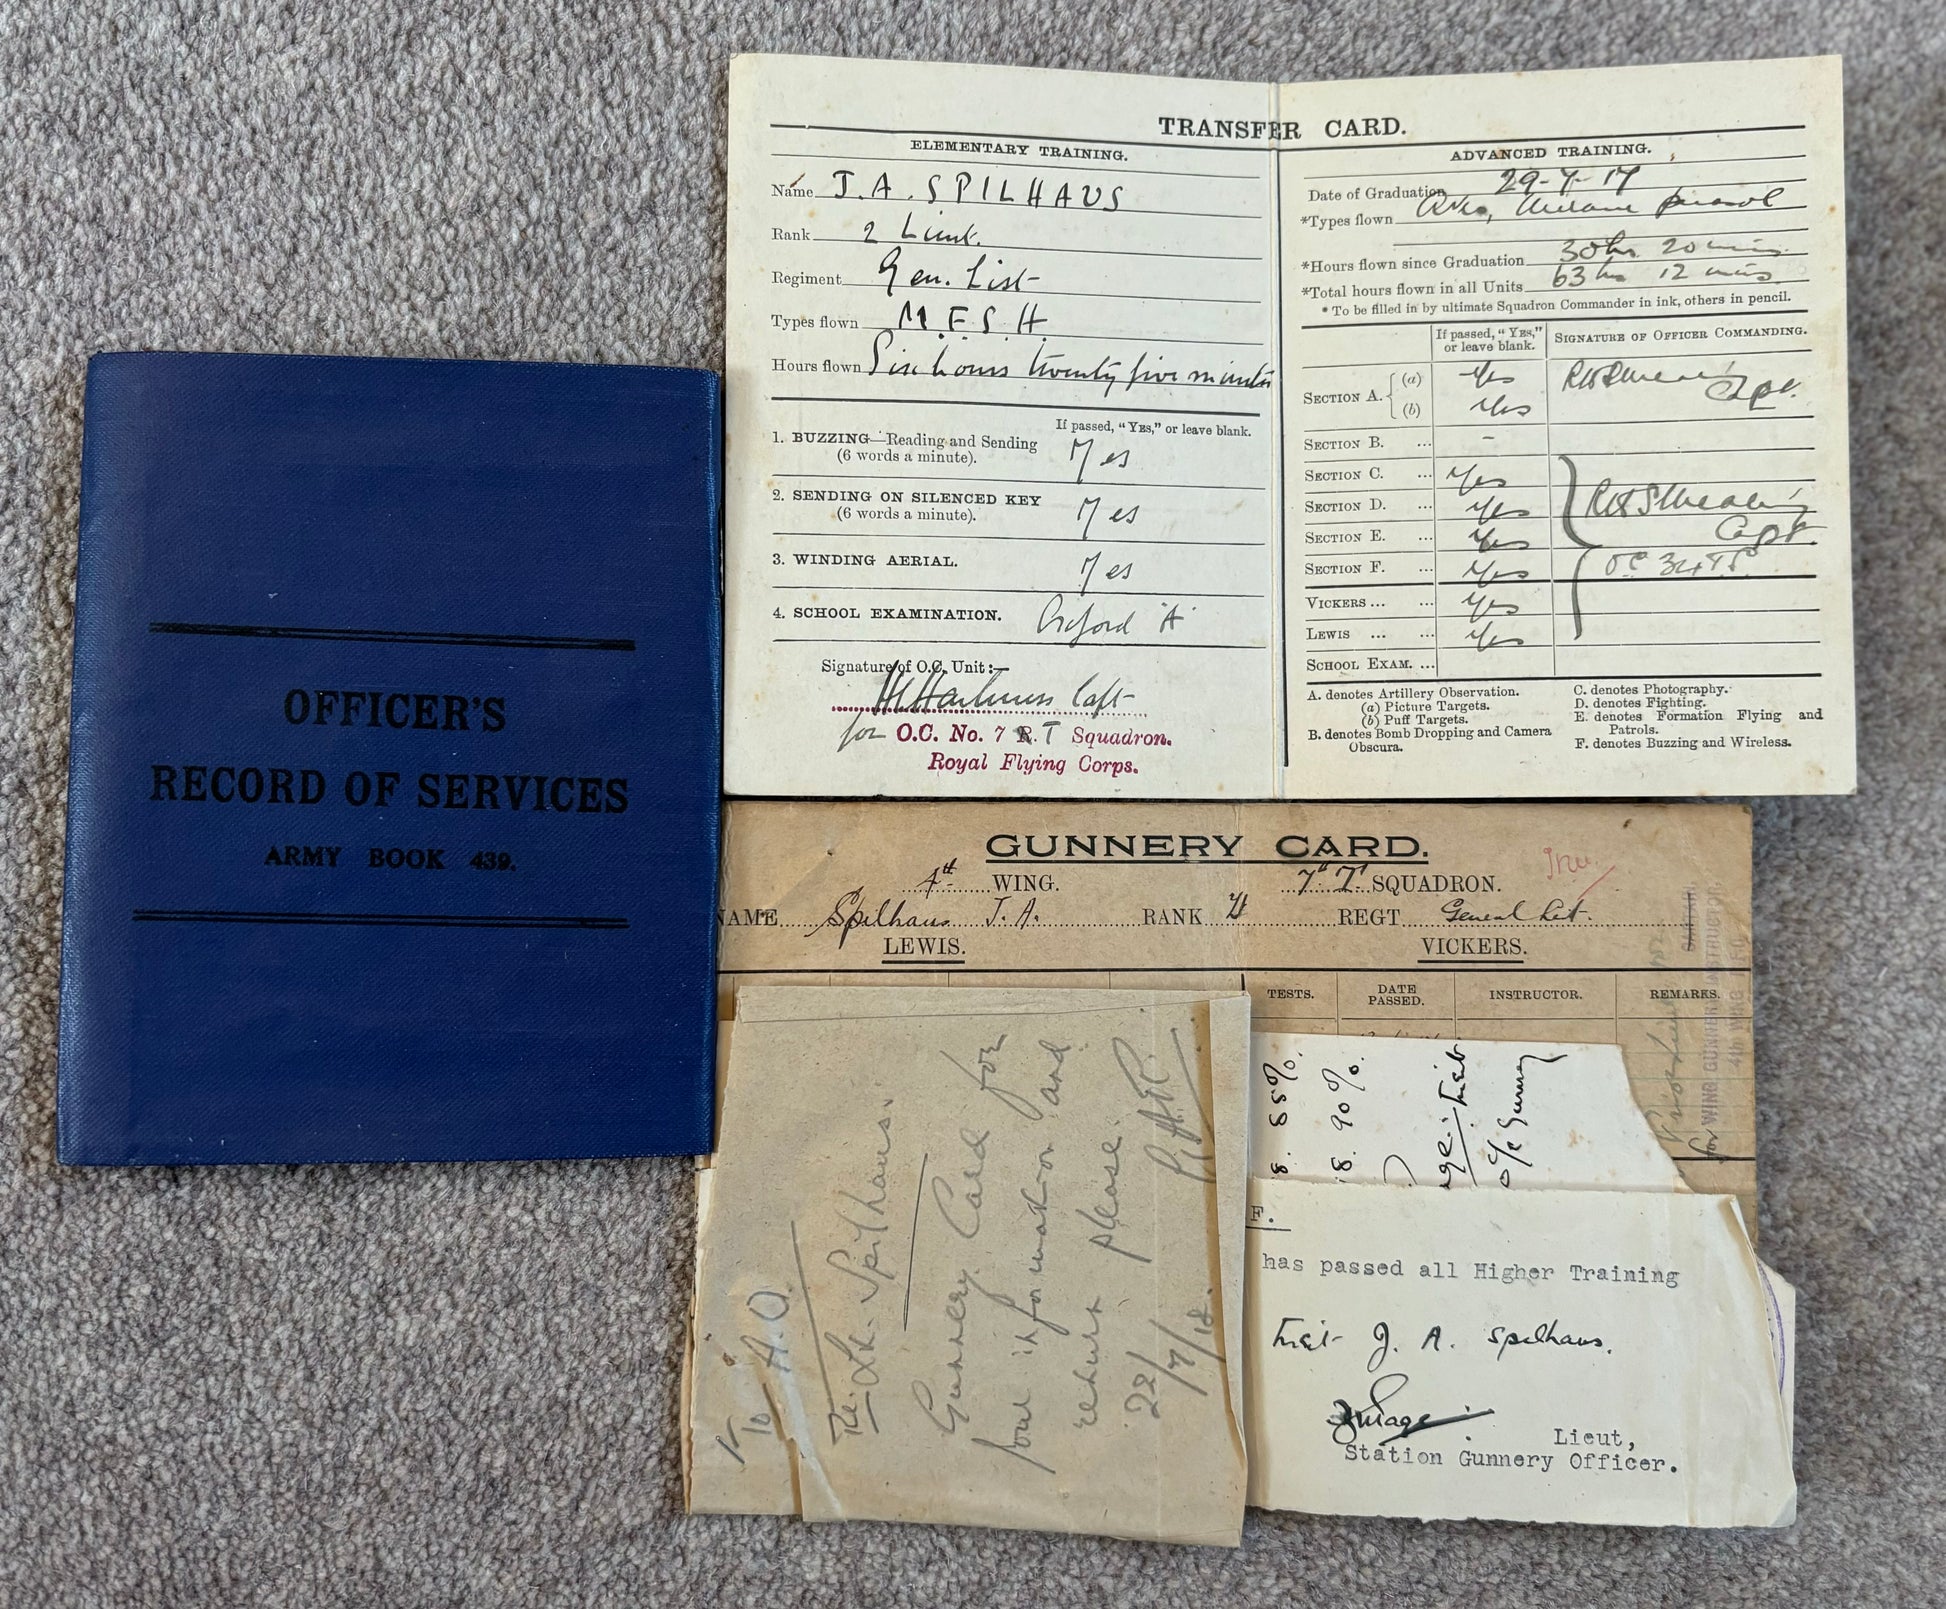 OFFICER'S
RECORD OF SERVICES
ARMY BOOK 439.
TRANSFER CARD.
ELEMENTARY TRAINING.
Name J. A. SPILHAUS
Rank 2 Lieut.
Regiment Gen. List
Types flown M.F.S.H
Hours flown Six hours twenty five minutes
If passed, "YES," or leave blank.
1. BUZZING—Reading and Sending
(6 words a minute). Yes
2. SENDING ON SILENCED KEY
(6 words a minute). Yes
3. WINDING AERIAL. Yes
4. SCHOOL EXAMINATION. Oxford 'A'
Signature of O.C. Unit:—
Capt
for O.C. No. 7 R.T Squadron.
Royal Flying Corps.
ADVANCED TRAINING.
Date of Graduation 29-7-17
*Types flown Avro,
*Hours flown since Graduation 30 hrs 20 mins
*Total hours flown in all Units 63 hrs 12 mins
* To be filled in by ultimate Squadron Commander in ink, others in pencil.
If passed, "YES," or leave blank. SIGNATURE OF OFFICER COMMANDING.
SECTION A. (a) Yes
Capt.
(b) Yes
SECTION B. ... -
SECTION C. ... Yes
SECTION D. ... Yes
SECTION E. ... Yes Capt.
SECTION F. ... Yes OC 34 TS
VICKERS ... ... Yes
LEWIS ... ... Yes
SCHOOL EXAM. ...
A. denotes Artillery Observation.
(a) Picture Targets.
(b) Puff Targets.
B. denotes Bomb Dropping and Camera
Obscura.
C. denotes Photography.
D. denotes Fighting.
E. denotes Formation Flying and
Patrols.
F. denotes Buzzing and Wireless.
GUNNERY CARD.
4th WING. 7th T SQUADRON.
NAME Spilhaus J. A. RANK REGT. General List.
LEWIS. VICKERS.
TESTS. DATE PASSED. INSTRUCTOR. REMARKS.
CAPTAIN.
for WING GUNNERY INSTRUCTOR.
4th WING
To A.O.
Re: Lt. Spilhaus.
Gunnery Card for
your information and
return please.
22/7/18.
8. 85%.
8. 90%.
Lieut
o/c Gunnery
F.
has passed all Higher Training
Lieut J. A. Spilhaus.
Lieut,
Station Gunnery Officer.